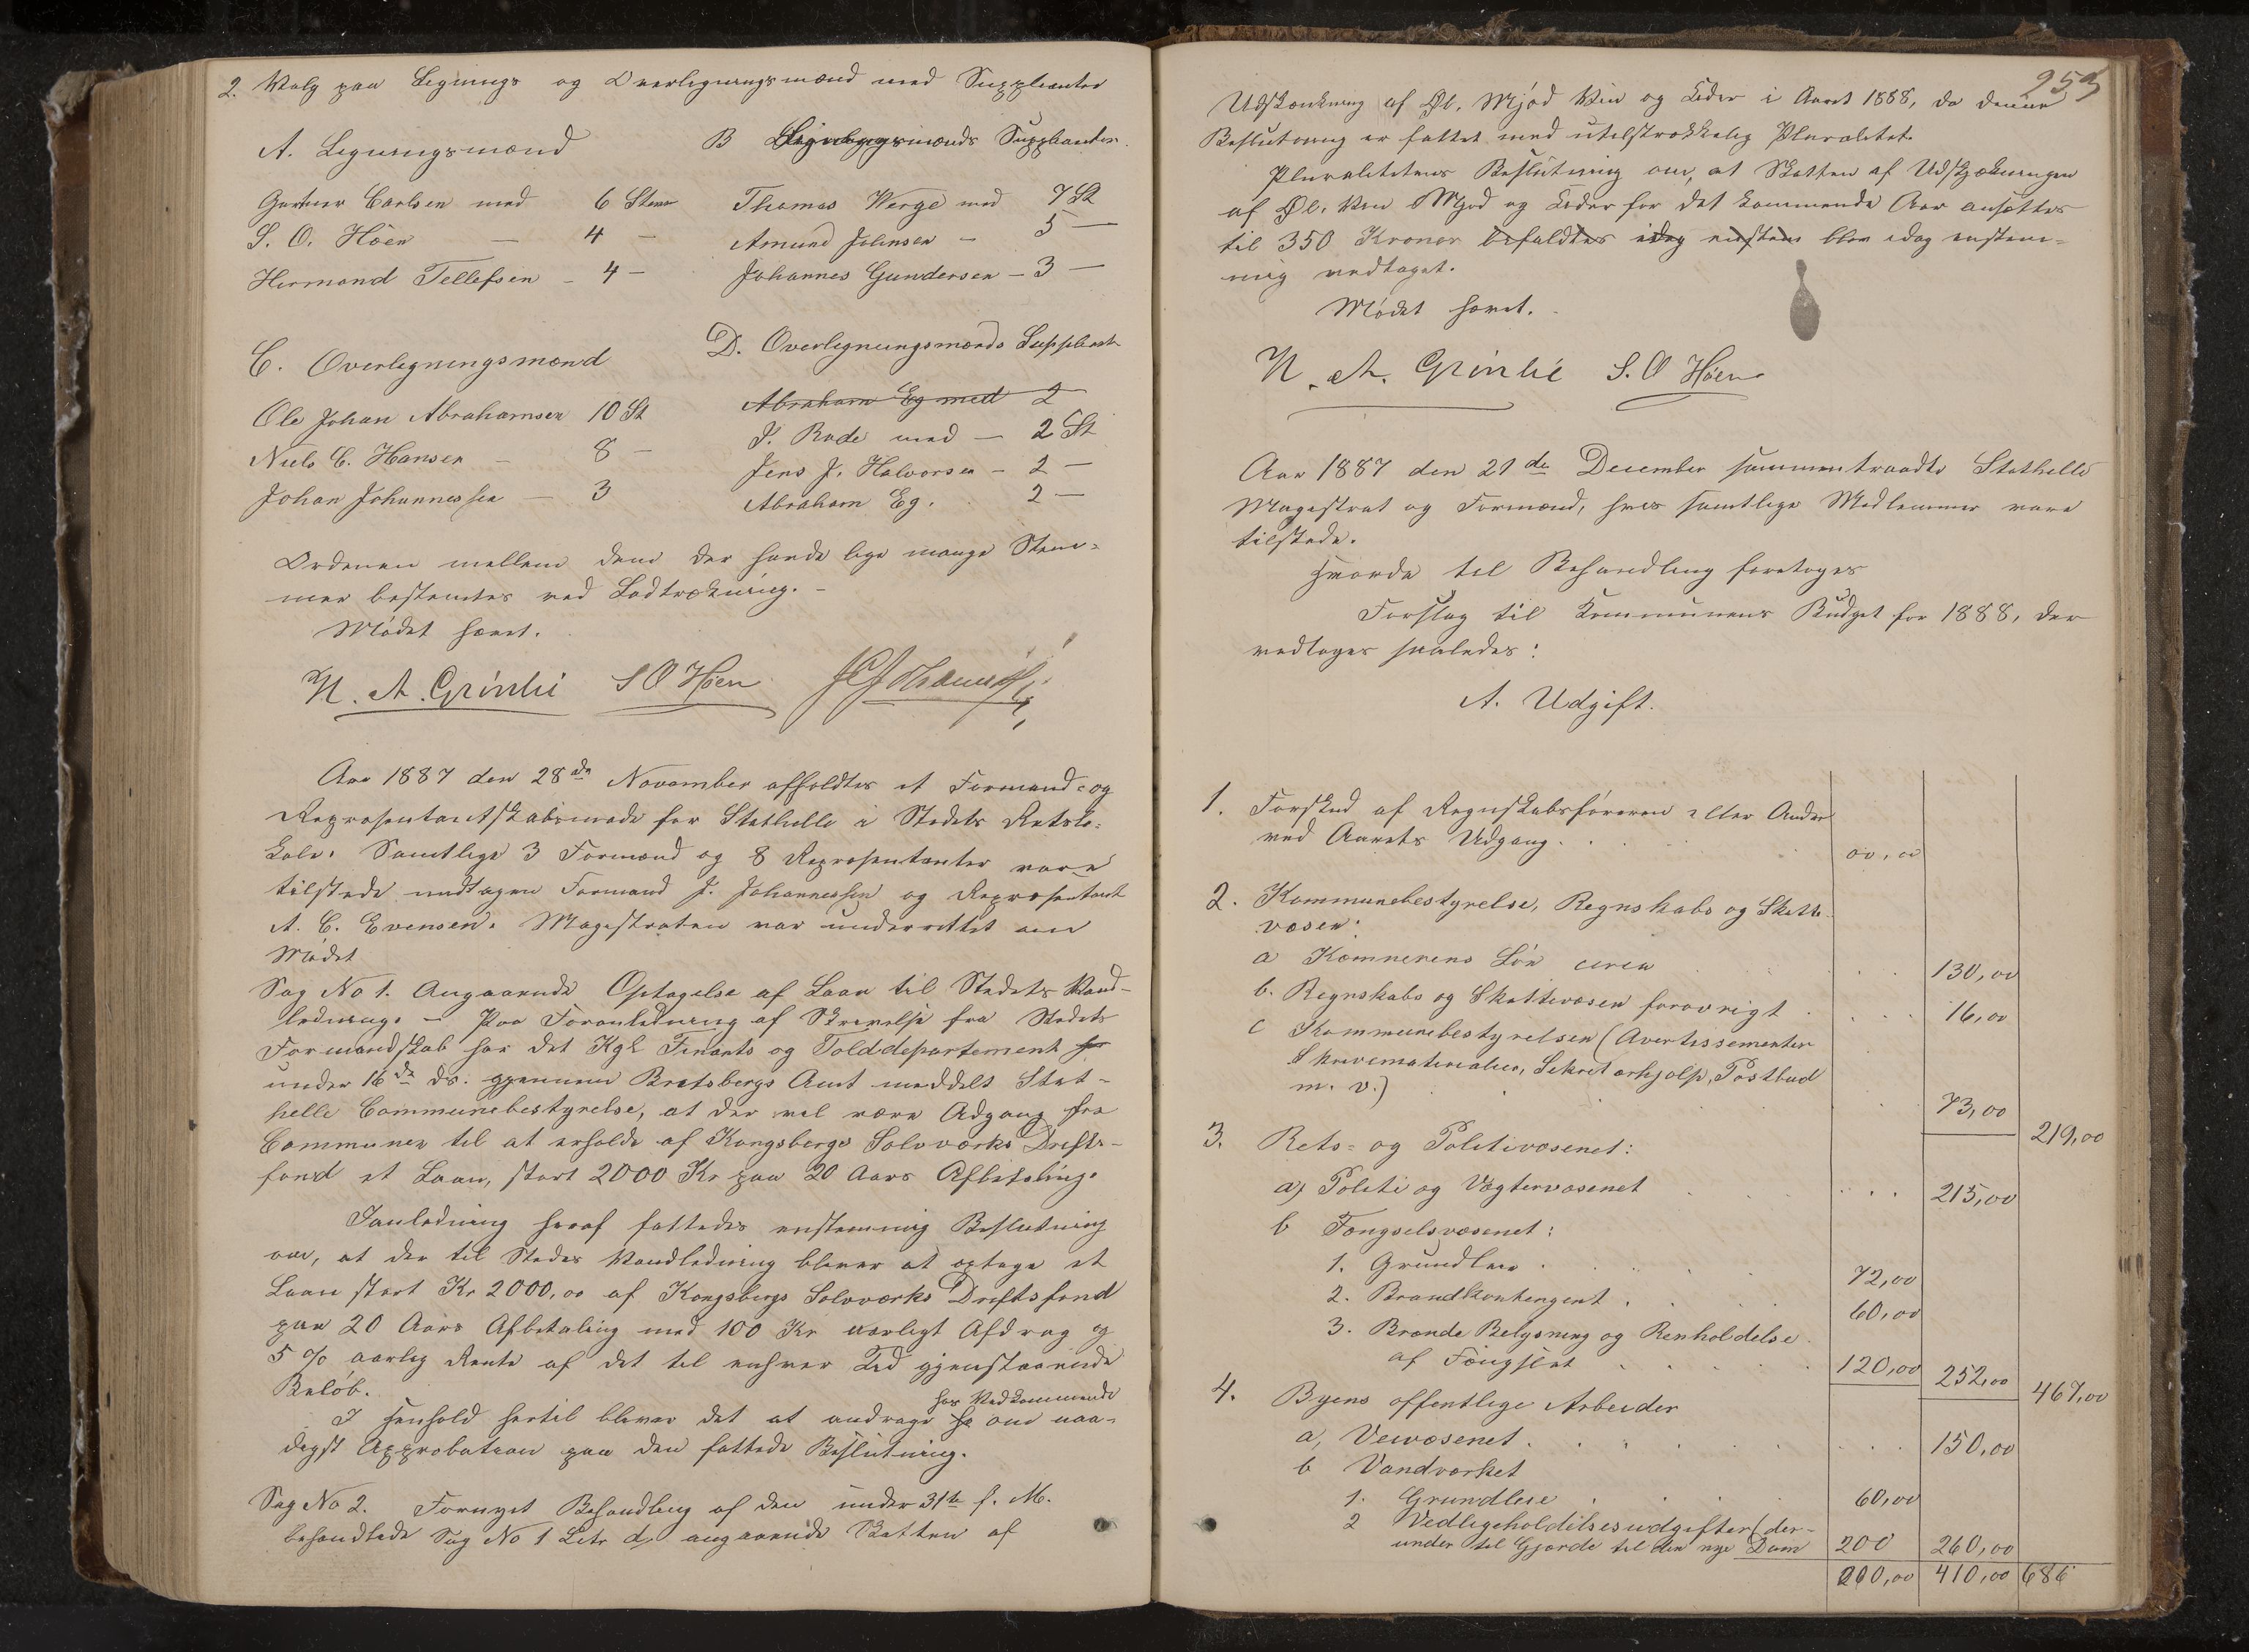 2. Valg paa Lignings og Overligningsmænd med Suppleanter
A. Ligningsmænd
Gartner Carlsen med 6 Stemr
S. O. Höen — 4 —
Hermand Tellefsen — 4 —
B Ligningsmænds Suppleanter.
Thomas Werge med 7 St
Amund Johnsen — 5 —
Johannes Gundersen — 3 —
C. Overligningsmænd
Ole Johan Abrahamsen 10 St
Niels C. Hansen — 8 —
Johan Johannessen — 3
D. Overligningsmænds Suppleant
Abraham Eg med 2
J. Rode med — 2 St
Jens J. Halvorsen — 2 —
Abraham Eg. 2 —
Ordenen mellem dem der havde lige mange Stem-
mer bestemtes ved Lodtrækning. —
Mödet hævet.
N. A. Grinlie S O Höen
Aar 1887 den 28de November afholdtes et Formand- og
Repræsentantskabsmöde for Stathelle i Stedets Retslo-
kale. Samtlige 3 Formænd og 8 Repræsentanter vare
tilstede undtagen Formand J. Johannessen og Repræsentant
A. C. Evensen. Magistraten var underrettet om
Mödet
Sag No 1. Angaaende Optagelse af Laan til Stedets Vand-
ledning. — Paa Foranledning af Skrivelse fra Stedets
Formandskab har det Kgl Finants og Tolddepartement har
under 16de ds. gjennem Bratsbergs Amt meddelt Stat-
helle Communebestyrelse, at der vil være Adgang for
Communen til at erholde af Kongsbergs Sölvværks Drifts-
fond et Laan, stort 2000 Kr paa 20 Aars Afbetaling.
I Anledning heraf fattedes enstemmig Beslutning
om, at der til Stedes Vandledning bliver at optage et
Laan stort Kr 2000,00 af Kongsbergs Sölvværks Driftsfond
paa 20 Aars Afbetaling med 100 Kr aarligt Afdrag og
5 % aarlig Rente af det til enhver Tid gjenstaaende
Belöb.
I Henhold hertil bliver det at andrage hos Vedkommende om naa-
digst Approbation paa den fattede Beslutning.
Sag No 2. Fornyet Behandling af den under 31te f. M.
behandlede Sag No 1 Litr d, angaaende Skatten af
953
Udskjænkning af Öl, Mjöd Vin og Cider i Aaret 1888, da denne
Beslutning er fattet med utilstrækkelig Pluralitet.
Pluralitetens Beslutning om, at Skatten af Udskjænkningen
af Öl, Vin Mjöd og Cider for det kommende Aar ansættes
til 350 Kroner bifaldtes idag enstem blev idag enstem-
mig vedtaget.
Mödet hævet.
N. A. Grinlie S. O Höen
Aar 1887 den 21de December sammentraadte Stathelle
Magistrat og Formænd, hvis samtlige Medlemmer vare
tilstede.
Hvorda til Behandling foretoges
Forslag til Kommunens Budget for 1888, der
vedtoges saaledes:
A. Udgift.
1. Forskud af Regnskabsföreren eller Andre
ved Aarets Udgang . . 00,00
2. Kommunebestyrelse, Regnskabs og Skatte-
væsen:
a Kæmnerens Lön circa . . 130,00
b. Regnskabs og Skattevæsen forövrigt . . 16,00
c Kommunebestyrelsen (Avertissementer
Skrivematerialier, Sekretærhjælp, Postbud
m. v.) . . 73,00 219,00
3. Rets- og Politivæsenet:
a, Politi og Vægtervæsenet . . 215,00
b Fængselsvæsenet:
1. Grundleie . . 72,00
2. Brandkontingent . . 60,00
3. Brænde Belysning og Renholdelse
af Fængslet . . 120,00 252,00 467,00
4. Byens offentlige Arbeider
a, Veivæsenet . . 150,00
b Vandværket
1. Grundleie . . 60,00
2 Vedligeholdelsesudgifter (der-
under til Gjærde til den nye Dam 200 260,00
260,00 410,00 686